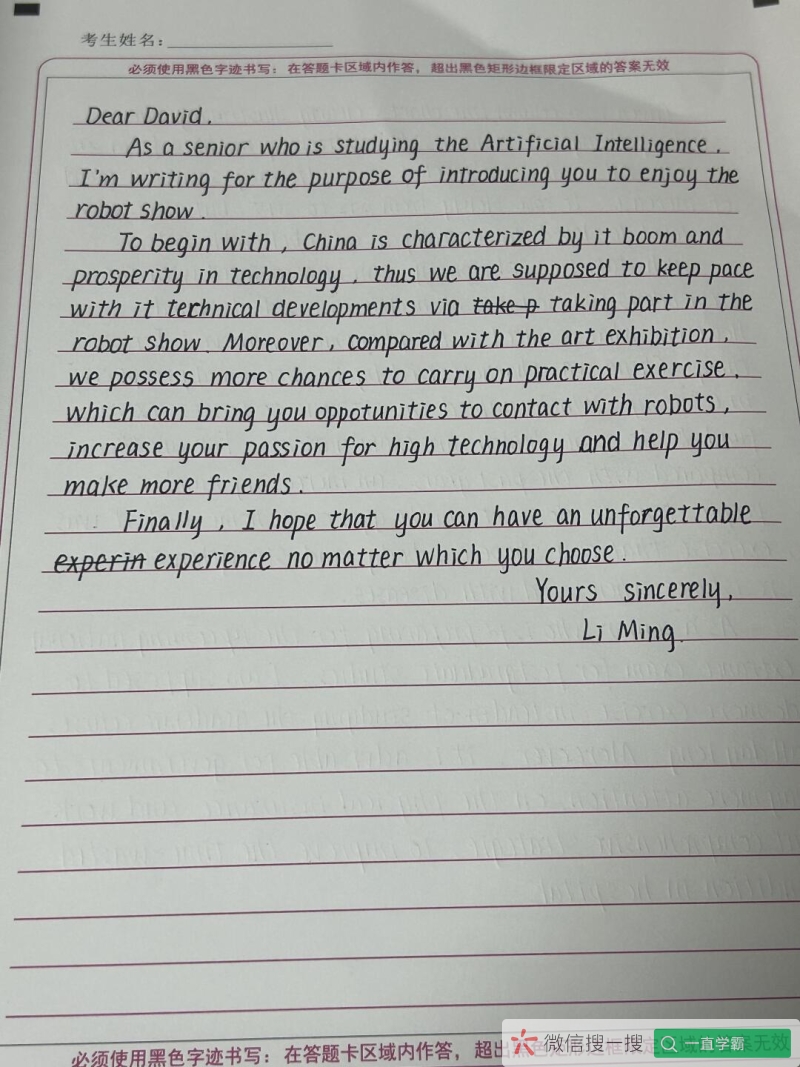 考生姓名：
必须使用黑色字迹书写：在答题卡区域内作答，超出黑色矩形边框限定区域的答案无效
Dear David,
As a senior who is studying the Artificial Intelligence,
I'm writing for the purpose of introducing you to enjoy the
robot show.
To begin with, China is characterized by it boom and
prosperity in technology, thus we are supposed to keep pace
with it technical developments via take p taking part in the
robot show. Moreover, compared with the art exhibition,
we possess more chances to carry on practical exercise,
which can bring you oppotunities to contact with robots,
increase your passion for high technology and help you
make more friends.
Finally, I hope that you can have an unforgettable
experin experience no matter which you choose.
Yours sincerely,
Li Ming.
必须使用黑色字迹书写：在答题卡区域内作答，超出黑色矩形边框限定区域的答案无效
微信搜一搜 一直学霸